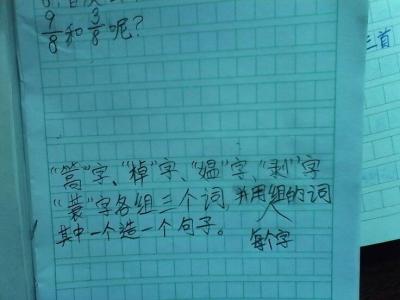 9/8和3/8呢?
三首
“蒿”字、“棹”字、“媪”字、“剥”字
“蓑”字各组三个词,并用组的词
其中一个造一个句子。
每个字